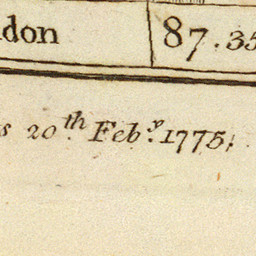 don 87.35
s 20th Feby. 1775.